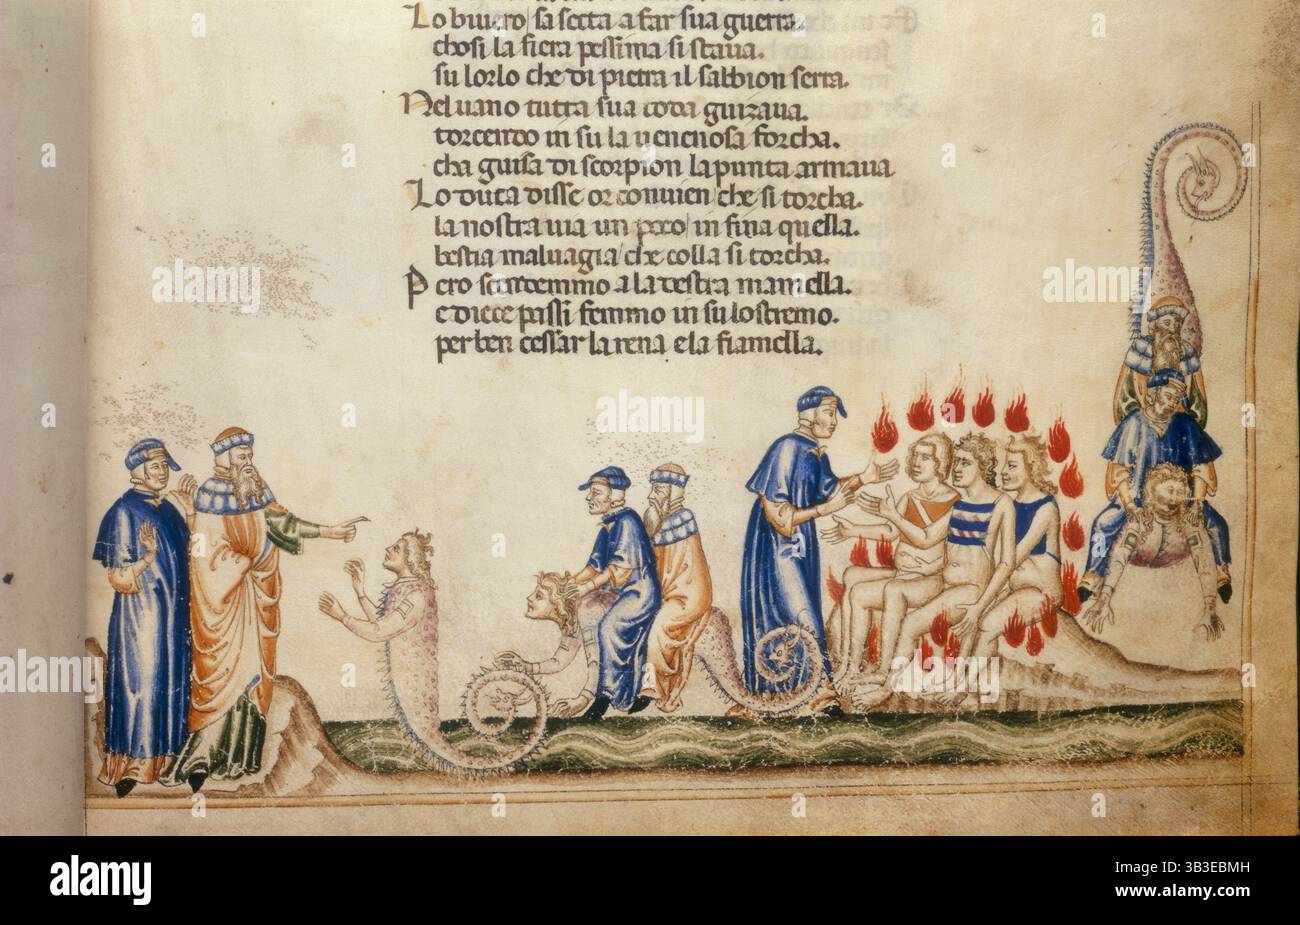 Lo biuero sa setta a far sua guerra.
chosi la fiera pessima si staua.
su lorlo che di pietra il sabbion serra.
Nel uano tutta sua coda guizaua.
torcendo in su la uenenosa forcha.
cha guisa di scorpion la punta armaua
Lo duca disse or conuien che si torcha.
la nostra uia un poco in fina quella.
bestia maluagia che colla si torcha.
Pero scendemmo a la destra mamella.
e diece passi femmo in su lostremo.
per ben cessar la rena e la fiamella.
alamy
Image ID: 3B3EBMH
www.alamy.com